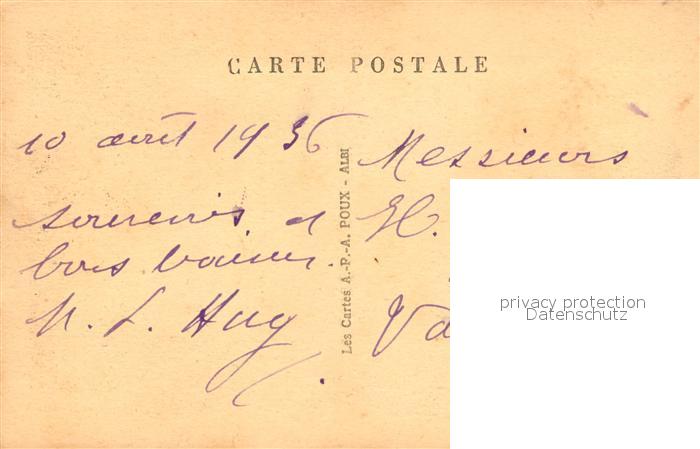 CARTE POSTALE
10 août 1936
souvenirs et
bons baisers.
M. L. Hug
Les Cartes A.-P.-A. POUX - ALBI
Messieurs
H.
Va
privacy protection
Datenschutz